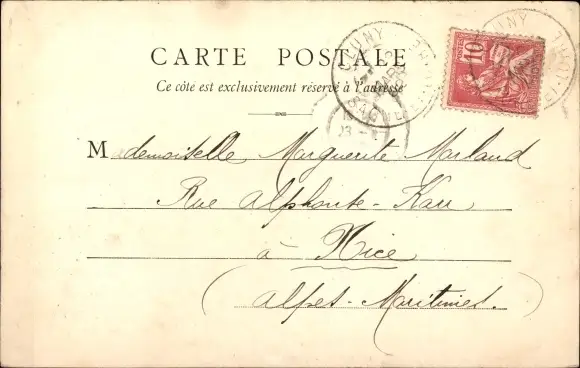 CARTE POSTALE
Ce côté est exclusivement réservé à l'adresse
10
CLUNY
Mademoiselle Marguerite Marland
Rue Alphonse-Karr
à Nice
(Alpes-Maritimes.)